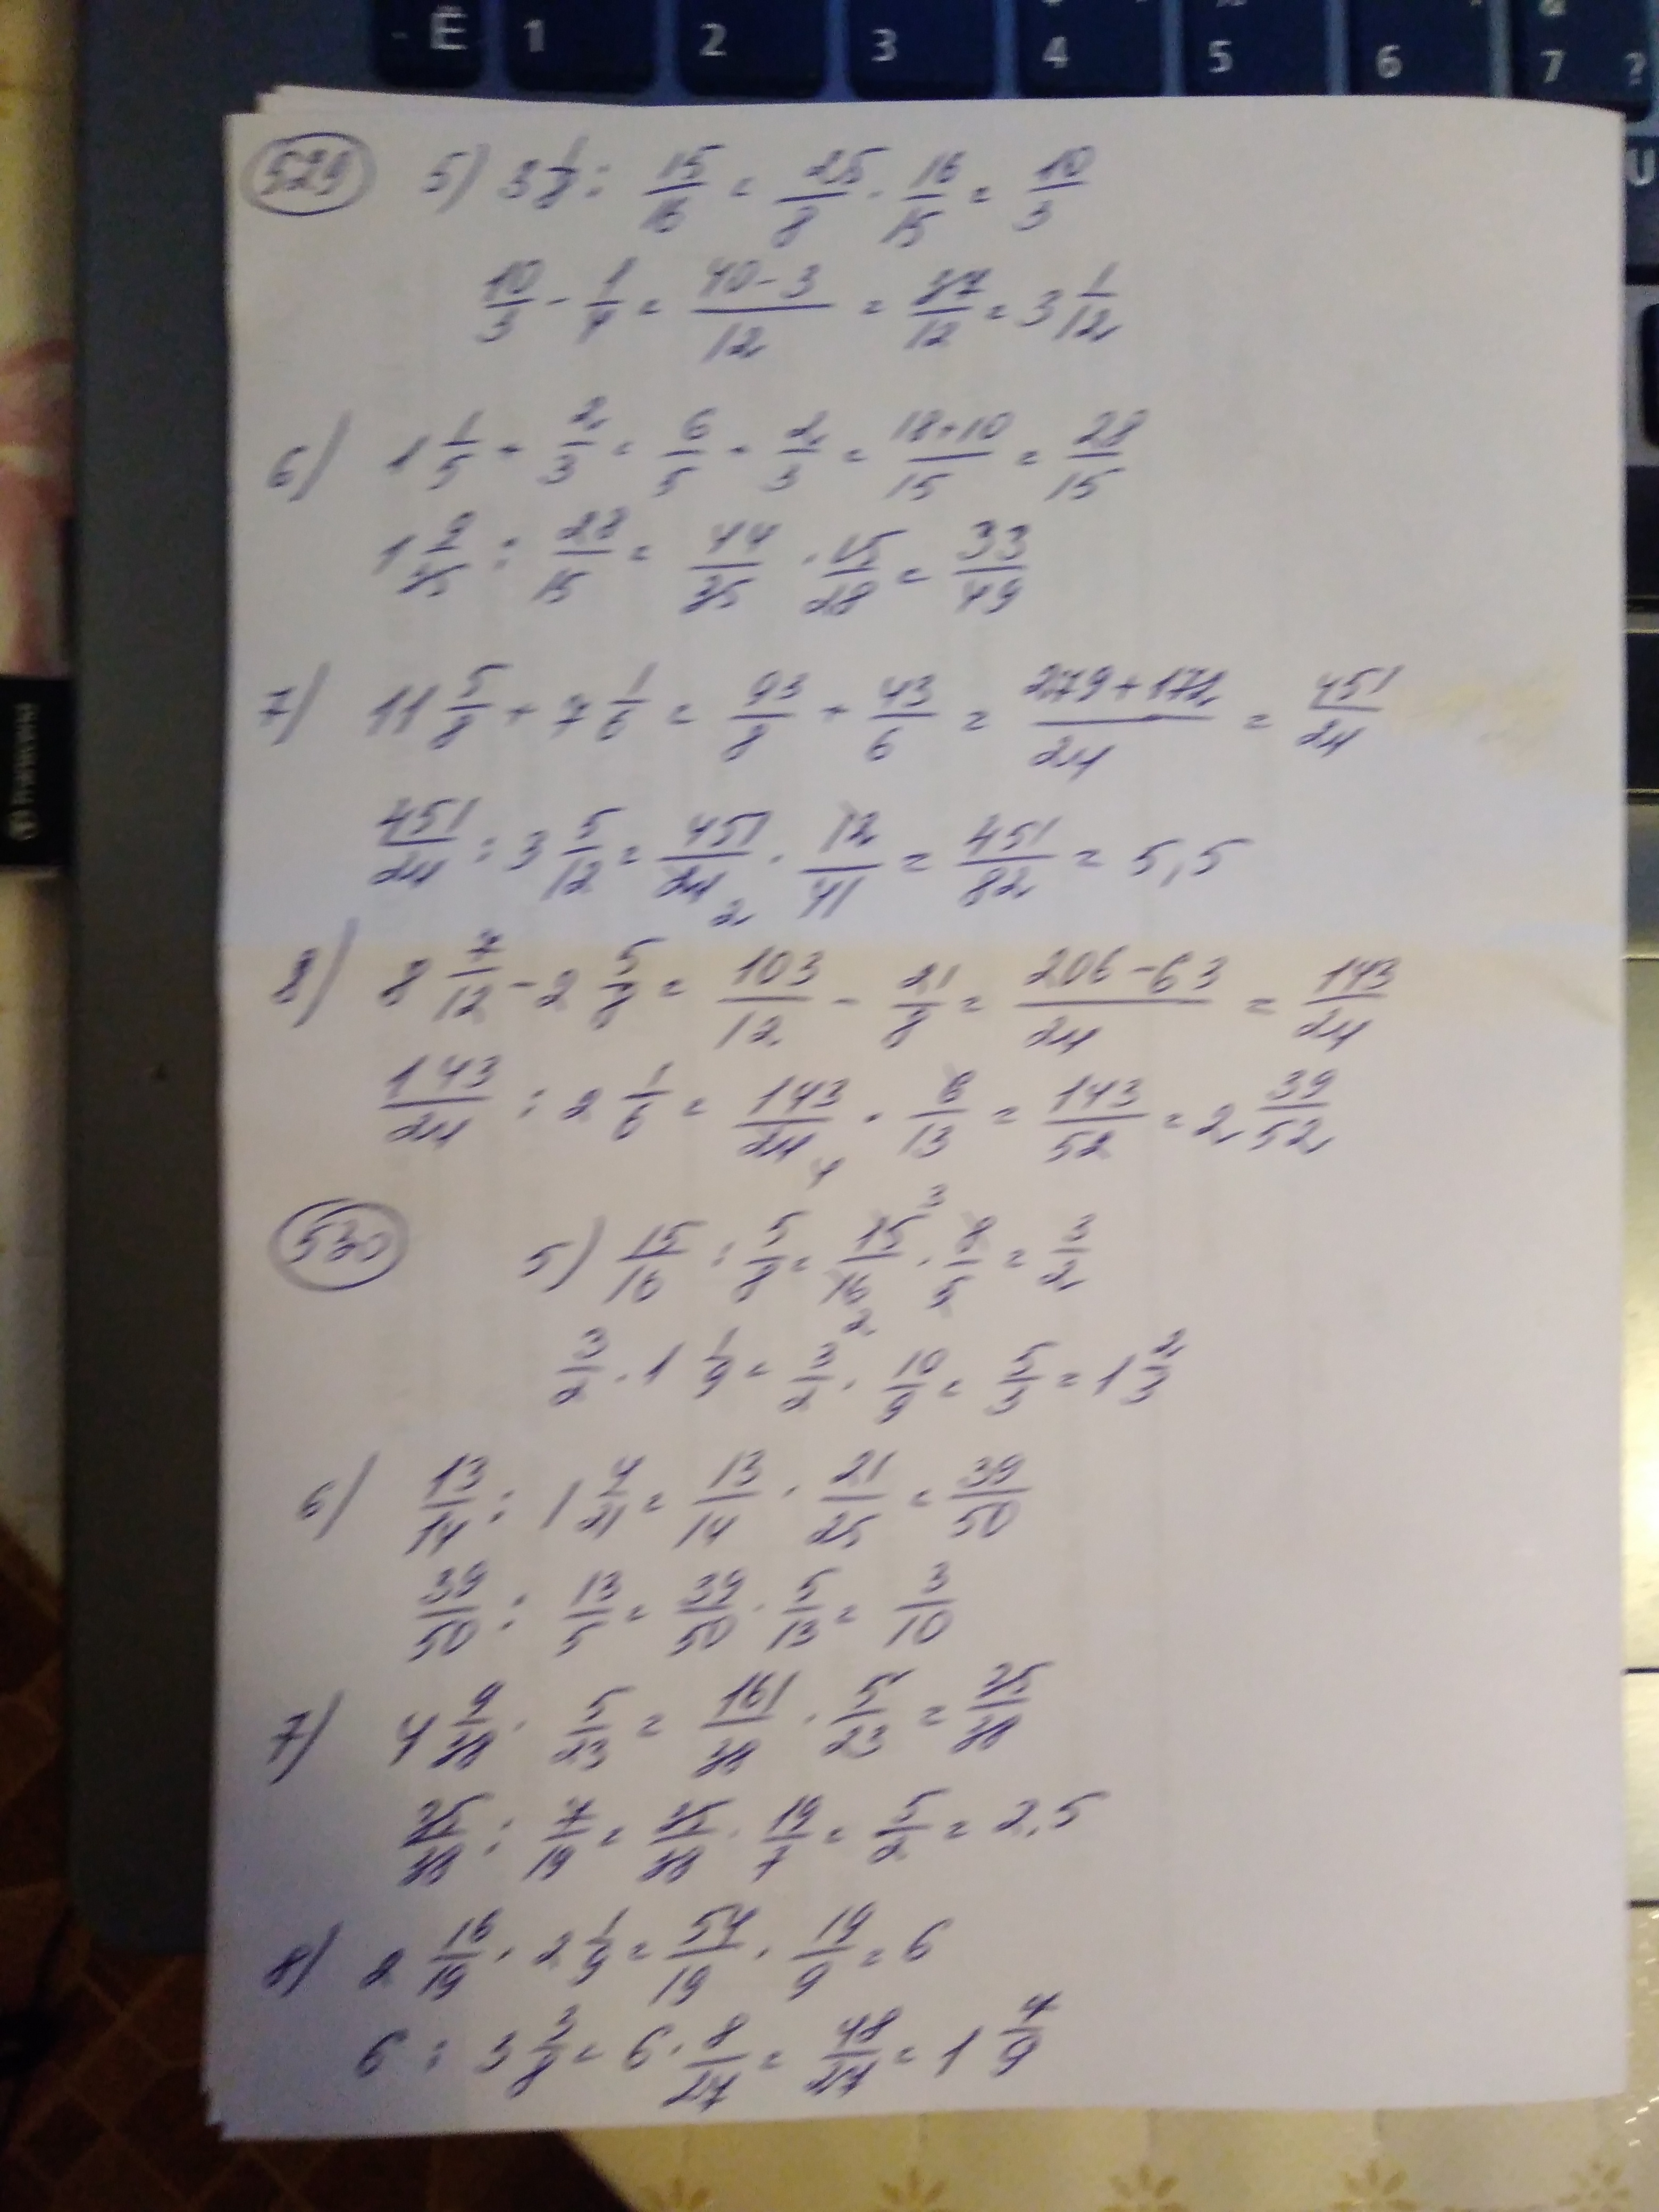 Ё 1 2 3 4 5 6 7 ?
U
529 5) 3 1/8 : 15/16 = 25/8 · 16/15 = 10/3
10/3 - 1/4 = (40-3)/12 = 37/12 = 3 1/12
6) 1 1/5 + 2/3 = 6/5 + 2/3 = (18+10)/15 = 28/15
1 9/35 : 28/15 = 44/35 · 15/28 = 33/49
7) 11 5/8 + 7 1/6 = 93/8 + 43/6 = (279+172)/24 = 451/24
451/24 : 3 5/12 = 451/24 2 · 12/41 = 451/82 = 5,5
8) 8 7/12 - 2 5/8 = 103/12 - 21/8 = (206-63)/24 = 143/24
143/24 : 2 1/6 = 143/24 4 · 6/13 = 143/52 = 2 39/52
530 5) 15/16 : 5/8 = 15 3/16 2 · 8/5 = 3/2
3/2 · 1 1/9 = 3/2 · 10/9 = 5/3 = 1 2/3
6) 13/14 : 1 4/21 = 13/14 · 21/25 = 39/50
39/50 : 13/5 = 39/50 · 5/13 = 3/10
7) 4 9/38 · 5/23 = 161/38 · 5/23 = 35/38
35/38 : 7/19 = 35/38 · 19/7 = 5/2 = 2,5
8) 2 16/19 · 2 1/9 = 54/19 · 19/9 = 6
6 : 3 3/8 = 6 · 8/27 = 48/27 = 1 7/9